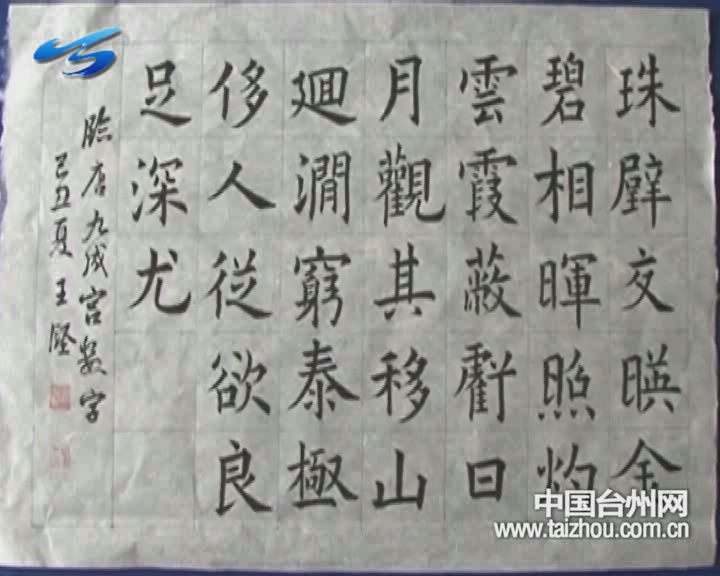 珠璧交暎金
碧相暉照灼
雲霞蔽虧日
月觀其移山
廻澗窮泰極
侈人從欲良
足深尤
臨唐九成宫数字
己丑夏 王
中国台州网
www.taizhou.com.cn